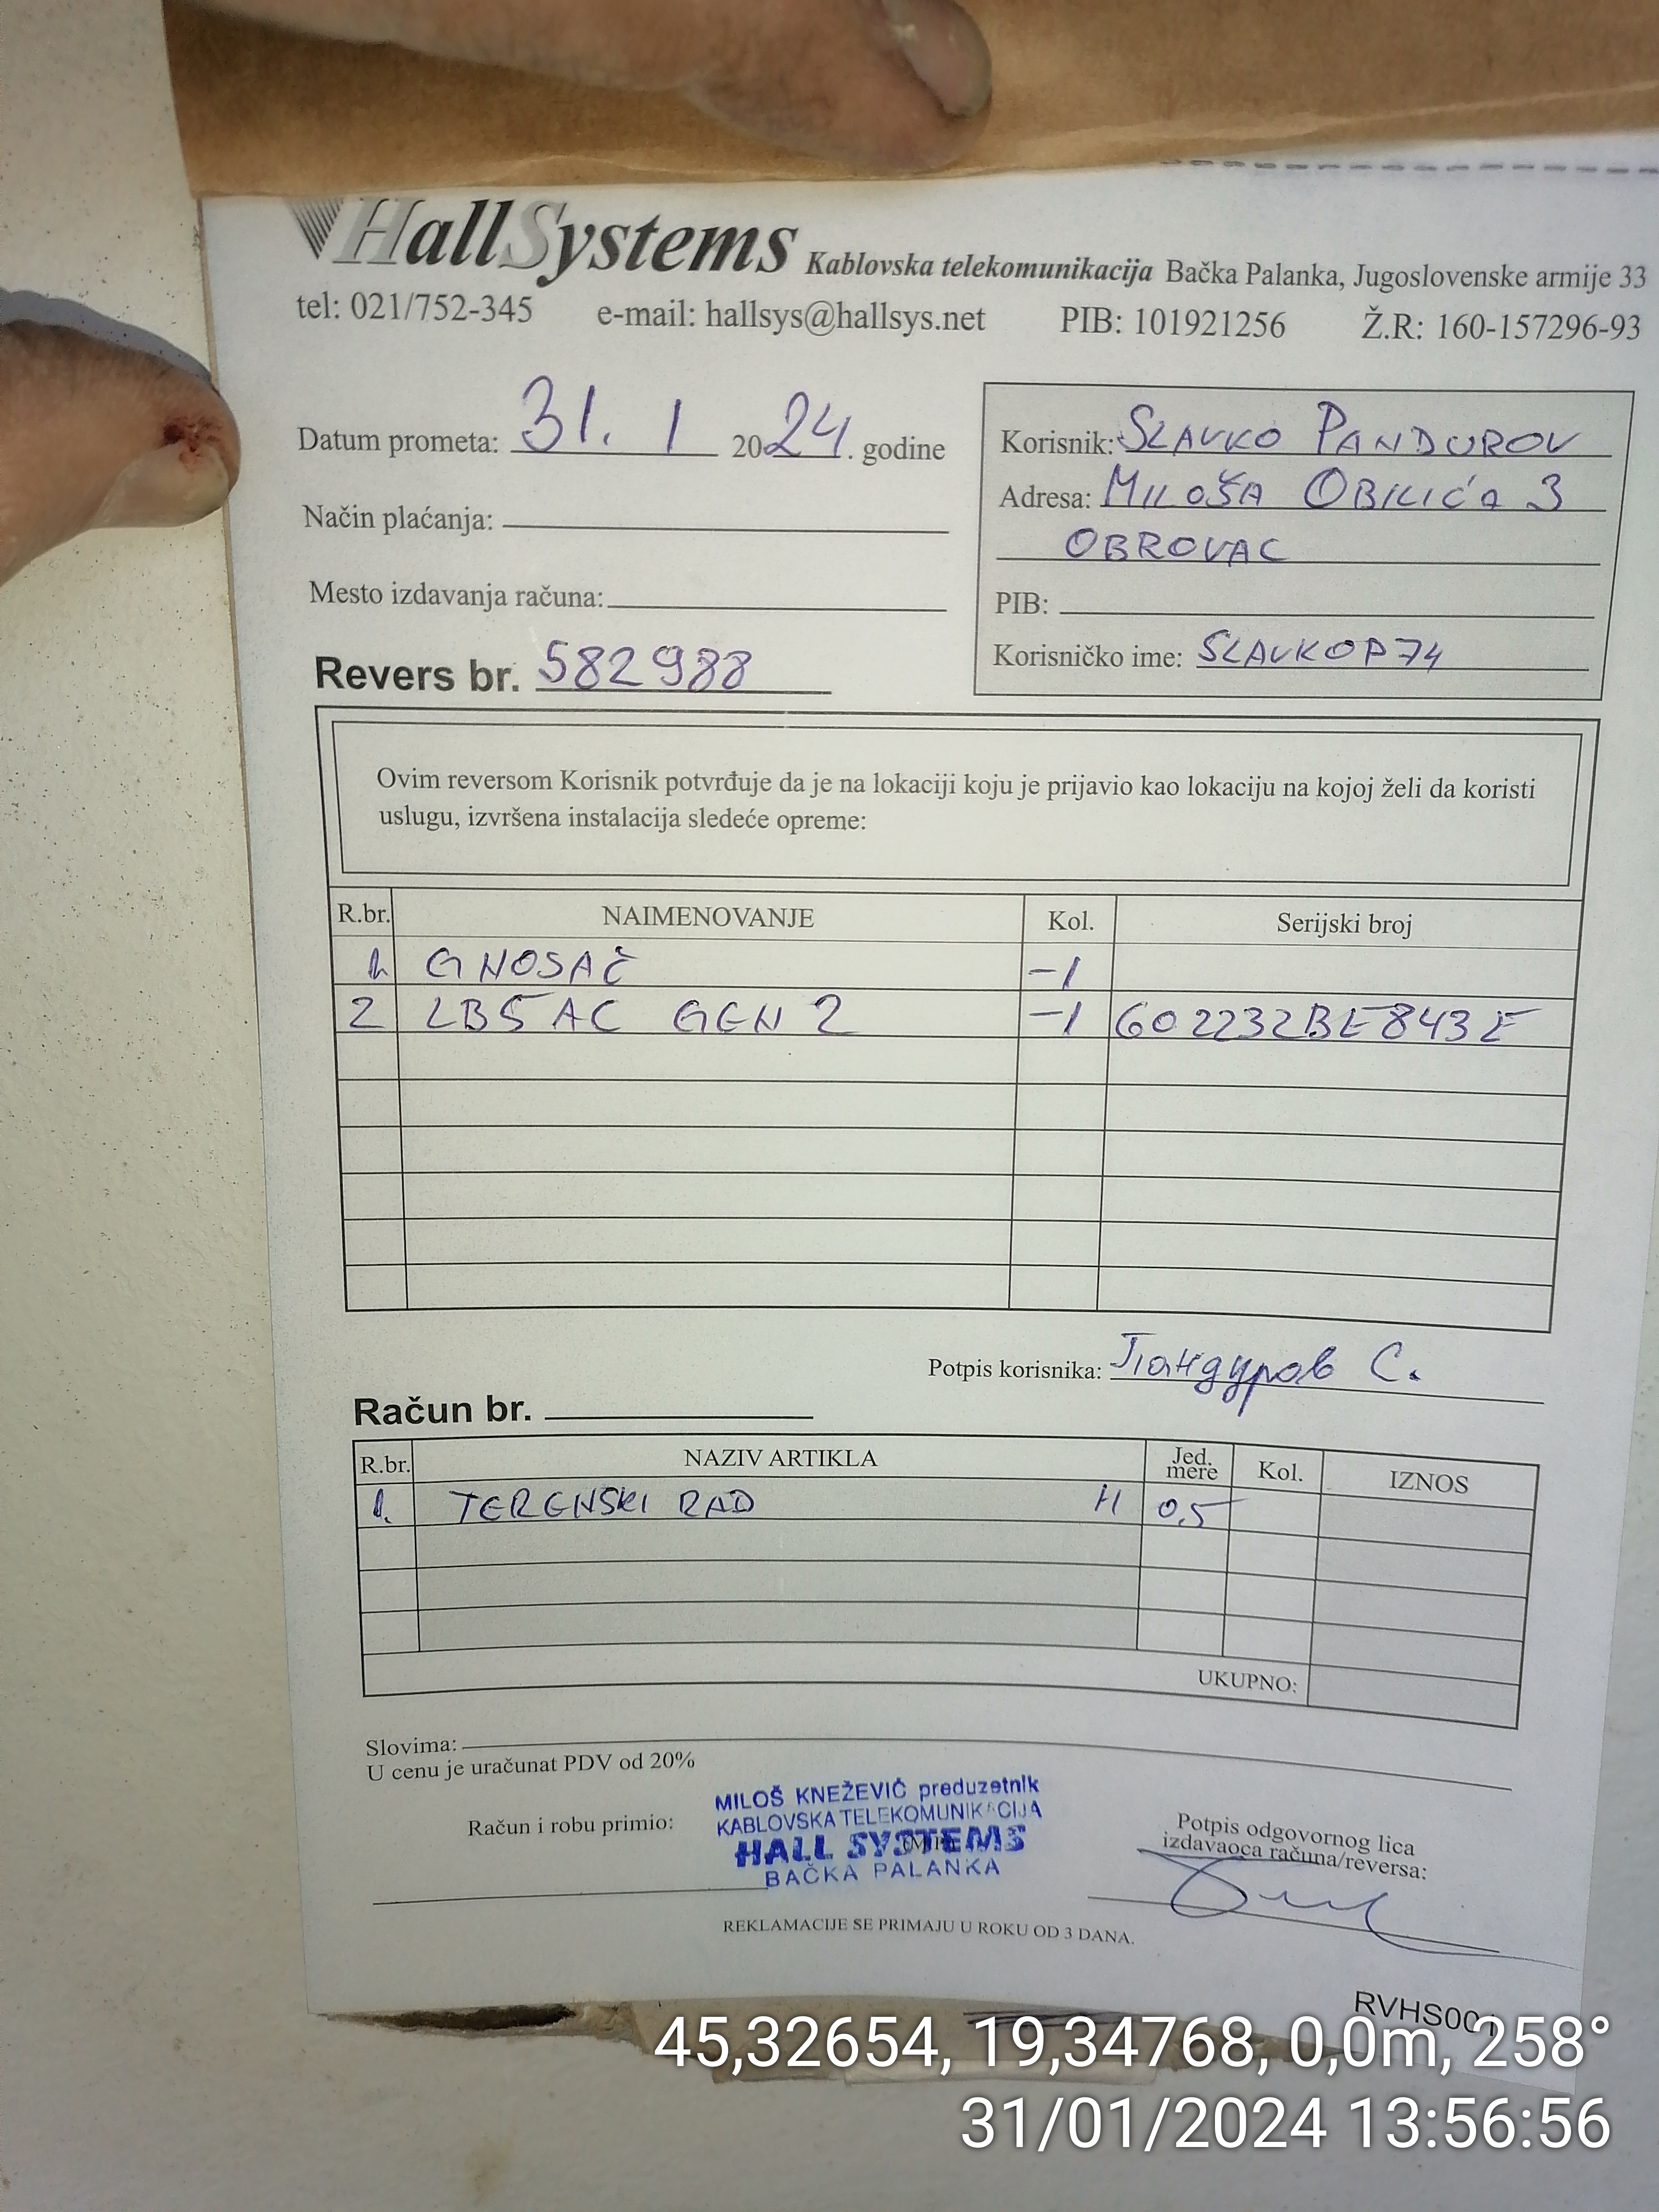 HallSystems Kablovska telekomunikacija Bačka Palanka, Jugoslovenske armije 33
tel: 021/752-345 e-mail: hallsys@hallsys.net PIB: 101921256 Ž.R: 160-157296-93
Datum prometa: 31. 1 2024. godine
Način plaćanja:
Mesto izdavanja računa:
Revers br. 582988
Korisnik: SLAVKO PANDUROV
Adresa: MILOŠA OBILIĆA 3
OBROVAC
PIB:
Korisničko ime: SLAVKOP74
Ovim reversom Korisnik potvrđuje da je na lokaciji koju je prijavio kao lokaciju na kojoj želi da koristi
uslugu, izvršena instalacija sledeće opreme:
R.br. NAIMENOVANJE Kol. Serijski broj
1. G NOSAČ -1
2 LB5AC GEN 2 -1 602232BE843E
Potpis korisnika: Пандуров С.
Račun br.
R.br. NAZIV ARTIKLA Jed. mere Kol. IZNOS
1. TERENSKI RAD H 0,5
UKUPNO:
Slovima:
U cenu je uračunat PDV od 20%
Račun i robu primio:
MILOŠ KNEŽEVIĆ preduzetnik
KABLOVSKA TELEKOMUNIKACIJA
HALL SYSTEMS
BAČKA PALANKA
Potpis odgovornog lica
izdavaoca računa/reversa:
REKLAMACIJE SE PRIMAJU U ROKU OD 3 DANA.
RVHS001
45,32654, 19,34768, 0,0m, 258°
31/01/2024 13:56:56